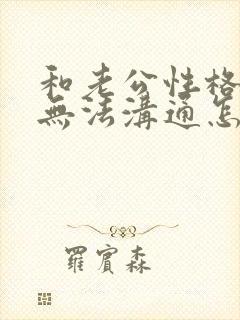 和老公性格
無法溝通怎
羅賓森